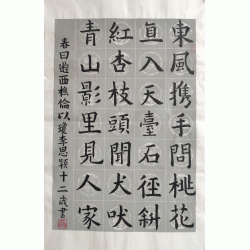 東風携手問桃花
直入天臺石徑斜
紅杏枝頭聞犬吠
青山影里見人家
春日遊西樵倫以瓊李思穎十二歲書